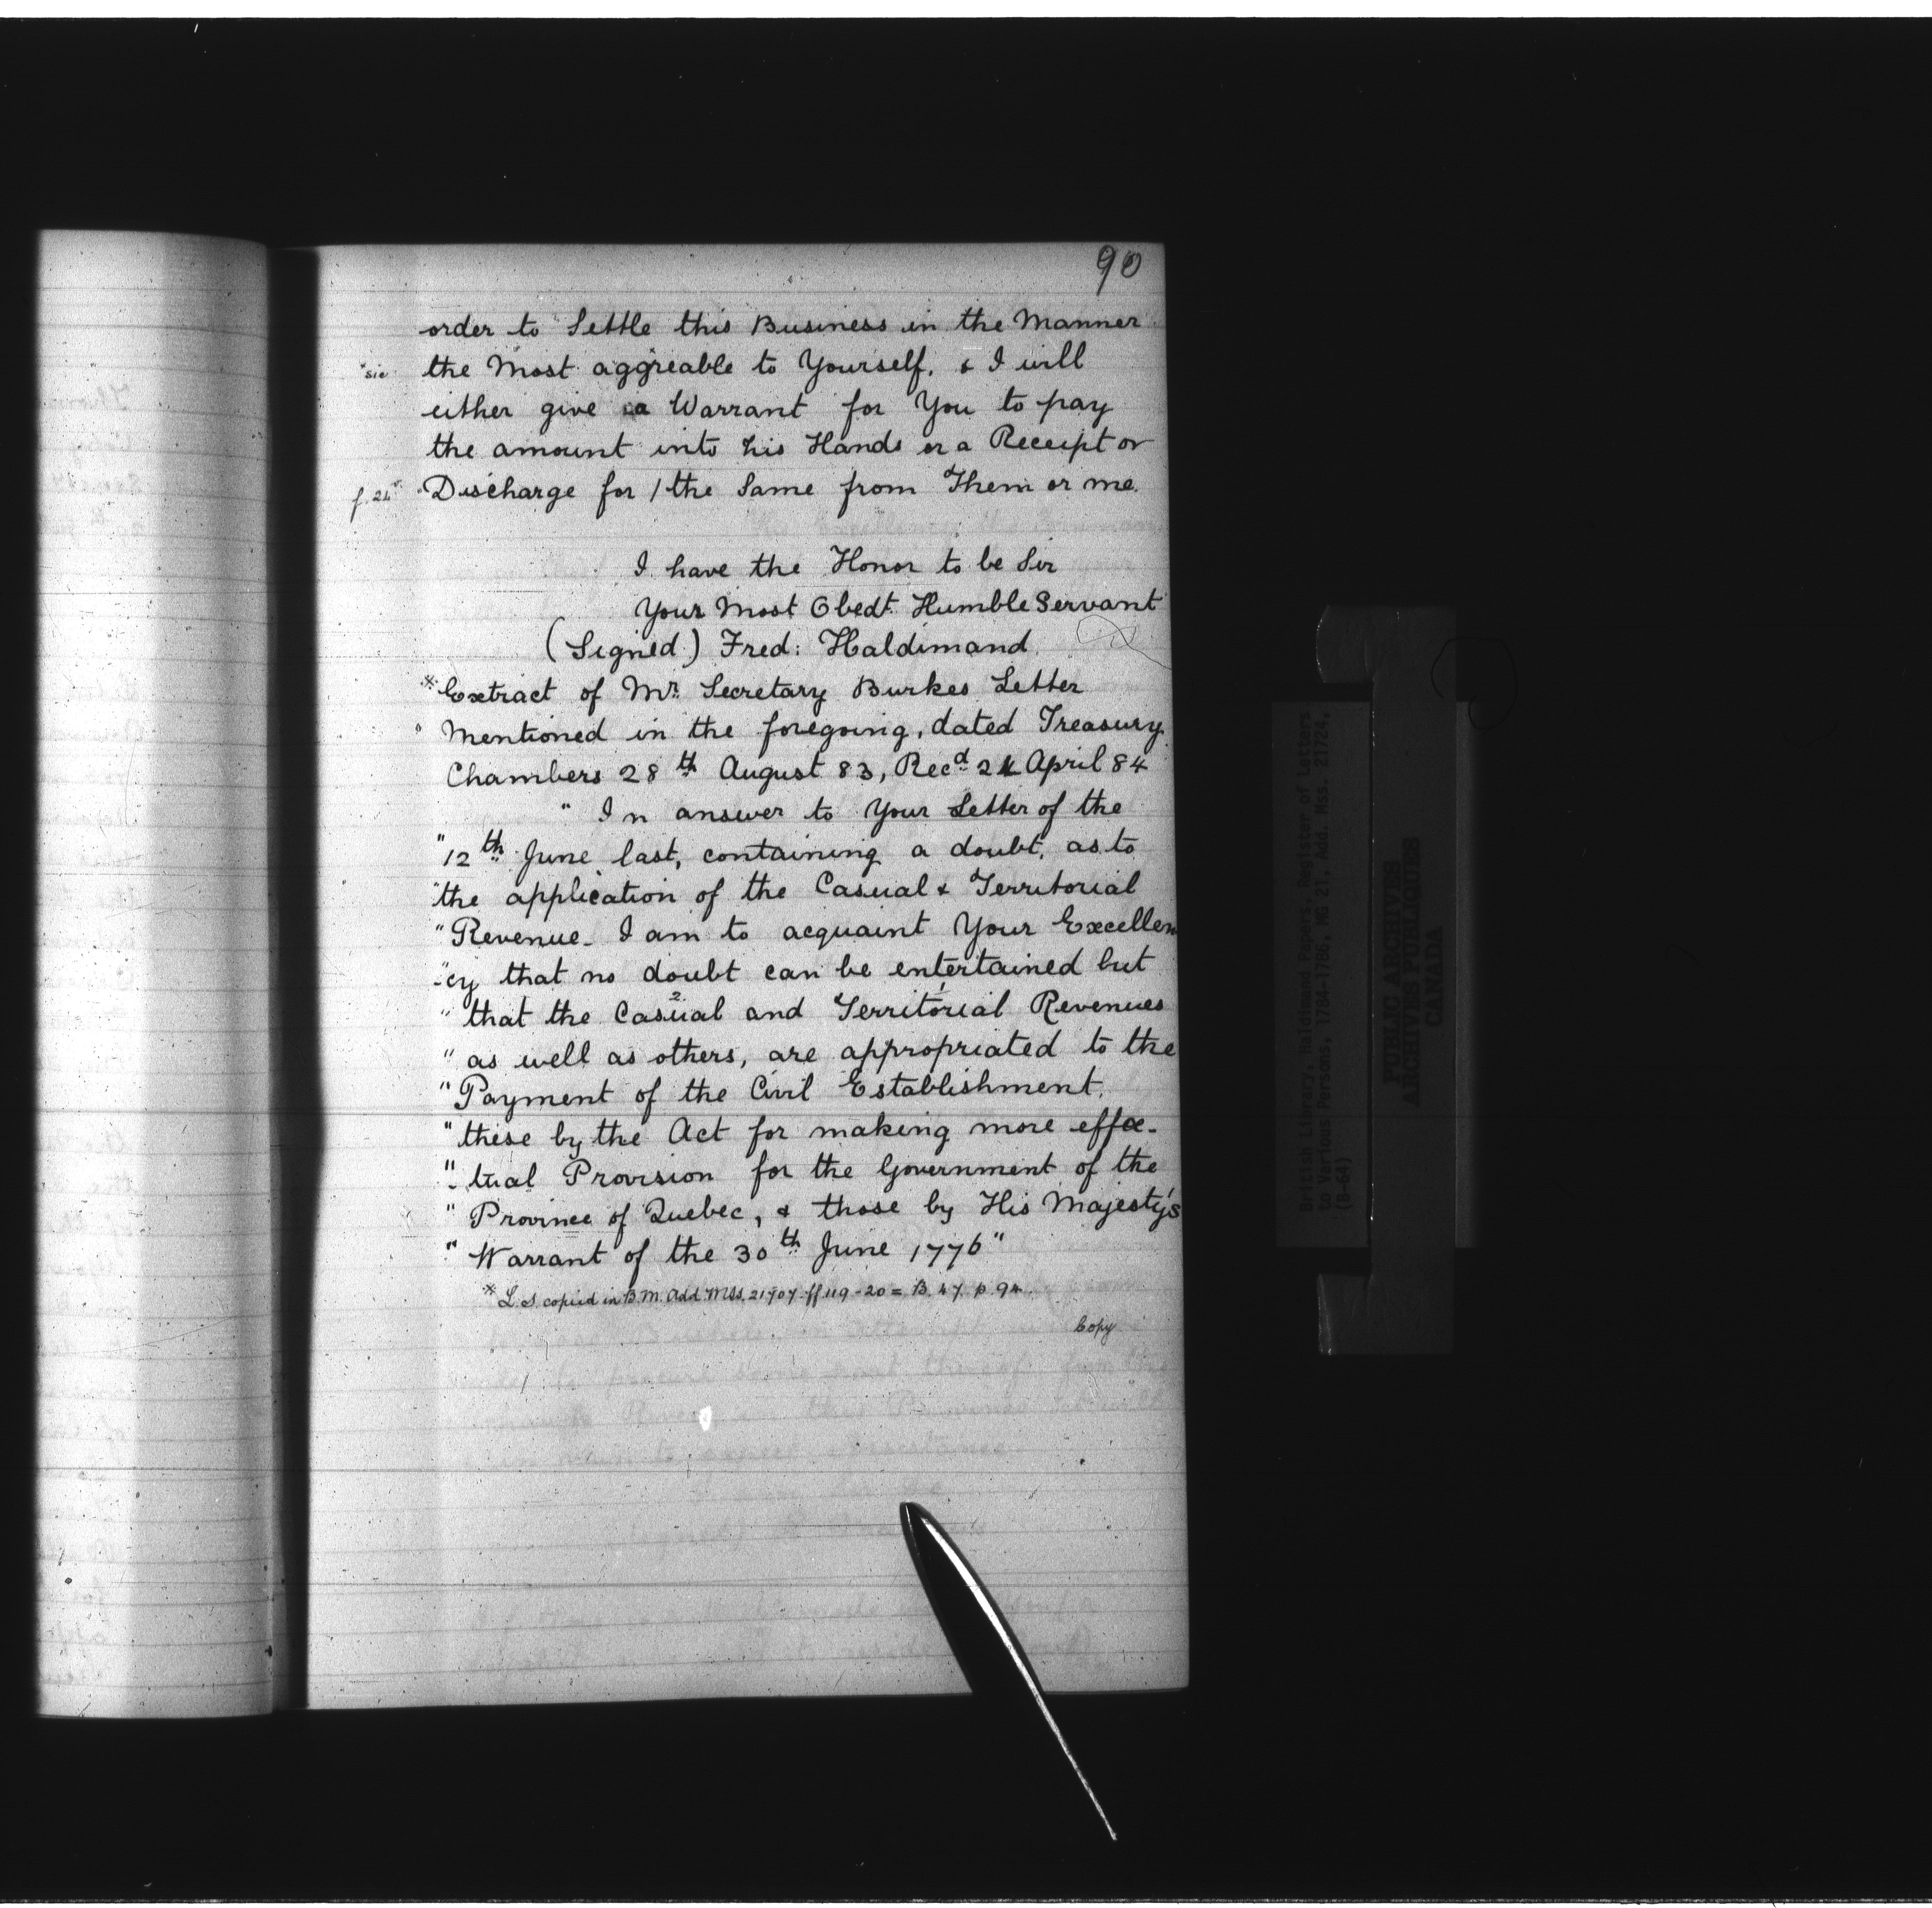 90
order to Settle this Business in the Manner
"sic the Most aggreable to Yourself, & I will
either give a Warrant for You to pay
the amount into his Hands or a Receipt or
Discharge for / the Same from Them or me.
I have the Honor to be Sir
Your Most Obedt. Humble Servant
(Signed) Fred: Haldimand.
* Extract of Mr. Secretary Burkes Letter
Mentioned in the foregoing, dated Treasury
Chambers 28th August 83, Recd. April 84
" In answer to Your Letter of the
" 12th June last, containing a doubt, as to
" the application of the Casual & Territorial
" Revenue - I am to acquaint Your Excellen
"-cy that no doubt can be entertained but
" that the Casual 2 and Territorial 1 Revenues
" as well as others, are appropriated to the
" Payment of the Civil Establishment,
" these by the Act for making more effec-
"-tual Provision for the Government of the
" Province of Quebec, & those by His Majesty's
" Warrant of the 30th June 1776"
* L. S. copied in B.M. Add. Mss. 21707. ff 119-20 = B. 47 p. 94.
Copy
British Library, Haldimand Papers, Register of Letters
to Various Persons, 1784-1786, MG 21, Add. Mss. 21724,
(B-64)
PUBLIC ARCHIVES
ARCHIVES PUBLIQUES
CANADA